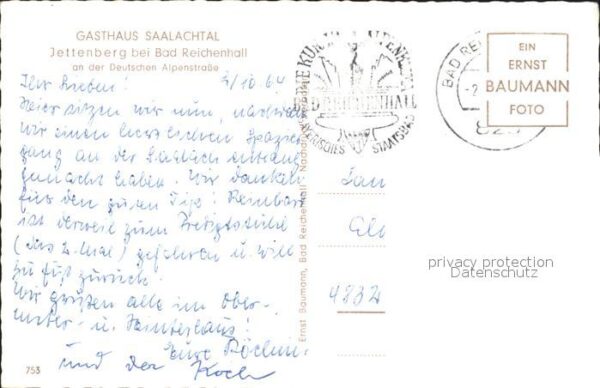 GASTHAUS SAALACHTAL
Jettenberg bei Bad Reichenhall
an der Deutschen Alpenstraße
Ihr Lieben! 2/10.64
Hier sitzen wir nun, nachdem
wir einen herrlichen Spazier
gang an der Saalach entlang
gemacht haben. Wir danken
für den guten Tip!
ist derweil zum Predigtstuhl
(das 2. Mal) gefahren u. will
zu Fuß zurück.
Wir grüßen alle im Ober-
unter- u. Hinterhaus!
Eure
und der Koch
753
Ernst Baumann, Bad Reichenhall
BAD REICHENHALL
STAATSBAD
BAD RE
EIN
ERNST
BAUMANN
FOTO
privacy protection
Datenschutz